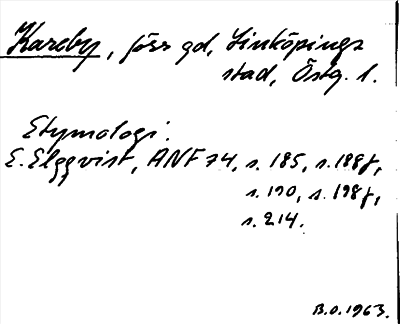 Kareby, förs gd, Linköpings
stad, Östg. l.
Etymologi:
E. Elgqvist, ANF 74, s. 185, s. 188f,
s. 190, s. 198f,
s. 214.
B.O. 1963.